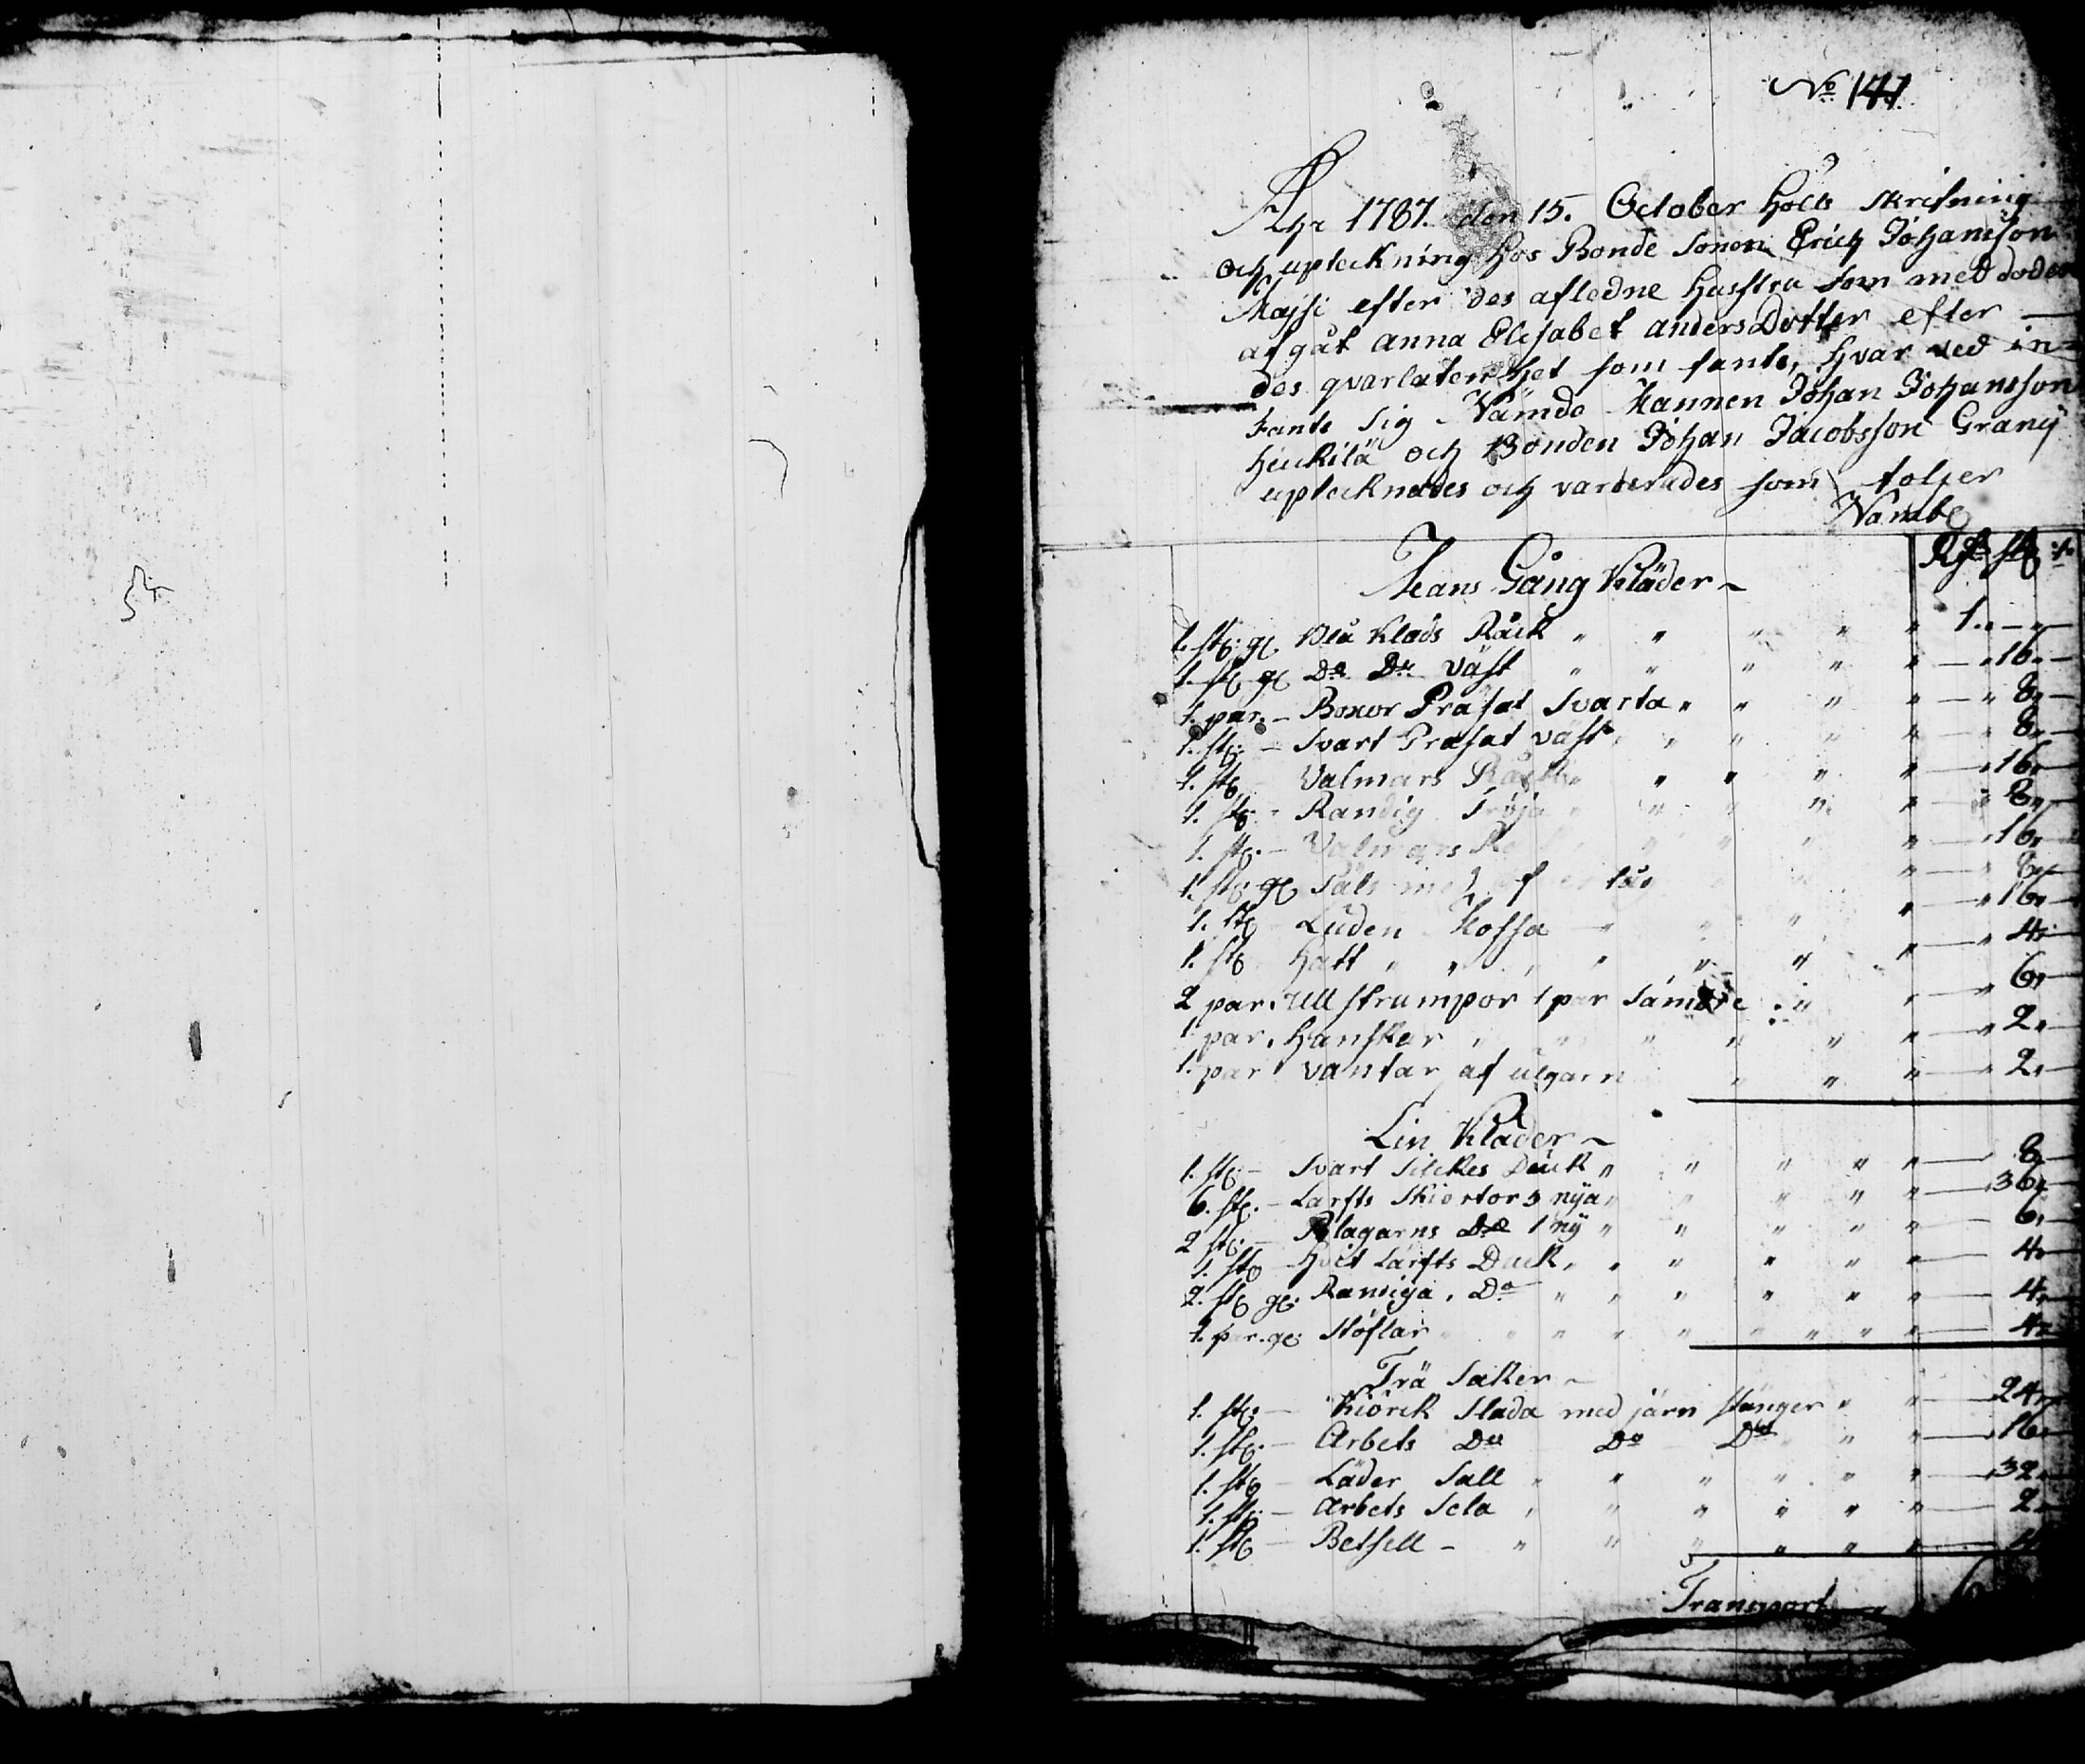 No 141
Åhr 1787. den 15. October hölts skrifning
och upteckning hos Bonde Sonen Erich Johansson
Majsi efter des afledne hustru som med döden
afgåt anna Elisabet anders Dotter efter —
des qvarlatenhet som fants, hvar ved in-
fants Sig Nämde Mannen Johan Johansson
heickilä och Bonden Johan Jacobsson Grany
uptecknades och varderades som folger
Nämbl
Hans Gång Kläder ~ Rd sk
1. st: gl Blå Klads Råck " " " " " 1. " — " —
1. st gl Do Do Väst " " " " " — " 16 " —
1. par. — Boxor Prasat Svarta " " " " — " 8 " —
1. st: — Svart Prasat väst " " " " — " 8 " —
1. st Valmars Råck " " " " " — " 16 " —
1. st: - Randig Tröja " " " " " — " 8 " —
1. st. — Valmars " " " " — " 16 "
1. st: gl " " — " 8 "
1. st Luden Mossa " " " " — " 16 "
1. st hatt " " " " " " " — " 4 "
2 par. Ull strumpor 1 par Sämbre " " — " 6 "
1. par. hanskar " " " " " " — " 2 "
1. par vantar af ulgarn " " " — " 2 "
Lin Kläder ~
1. st: — Svart Silckes Duk " " " " " — 8 "
6. st. — Larfts Skiortor 3 nya " " " " " — " 36 "
2 st: — Blagarns Do 1 ny " " " " " — 6 "
1. st hvit Lärfts Duck " " " " " " — 4 "
2. st gl: Randiga. Do " " " " " " " — 4 "
1. par. gl: Stöflar " " " " " " " " " — 4 "
Trä Saker ~
1. st: — Kiörck Slada med järn stänger " " — 24 "
1. st: — Arbets Do Do Do " " — 16 "
1. st — Läder Sall " " " " " " — " 32 "
1. st: — Arbets Sela " " " " " " — 2 "
1. st — Betsell — " " " " " " —
Transport